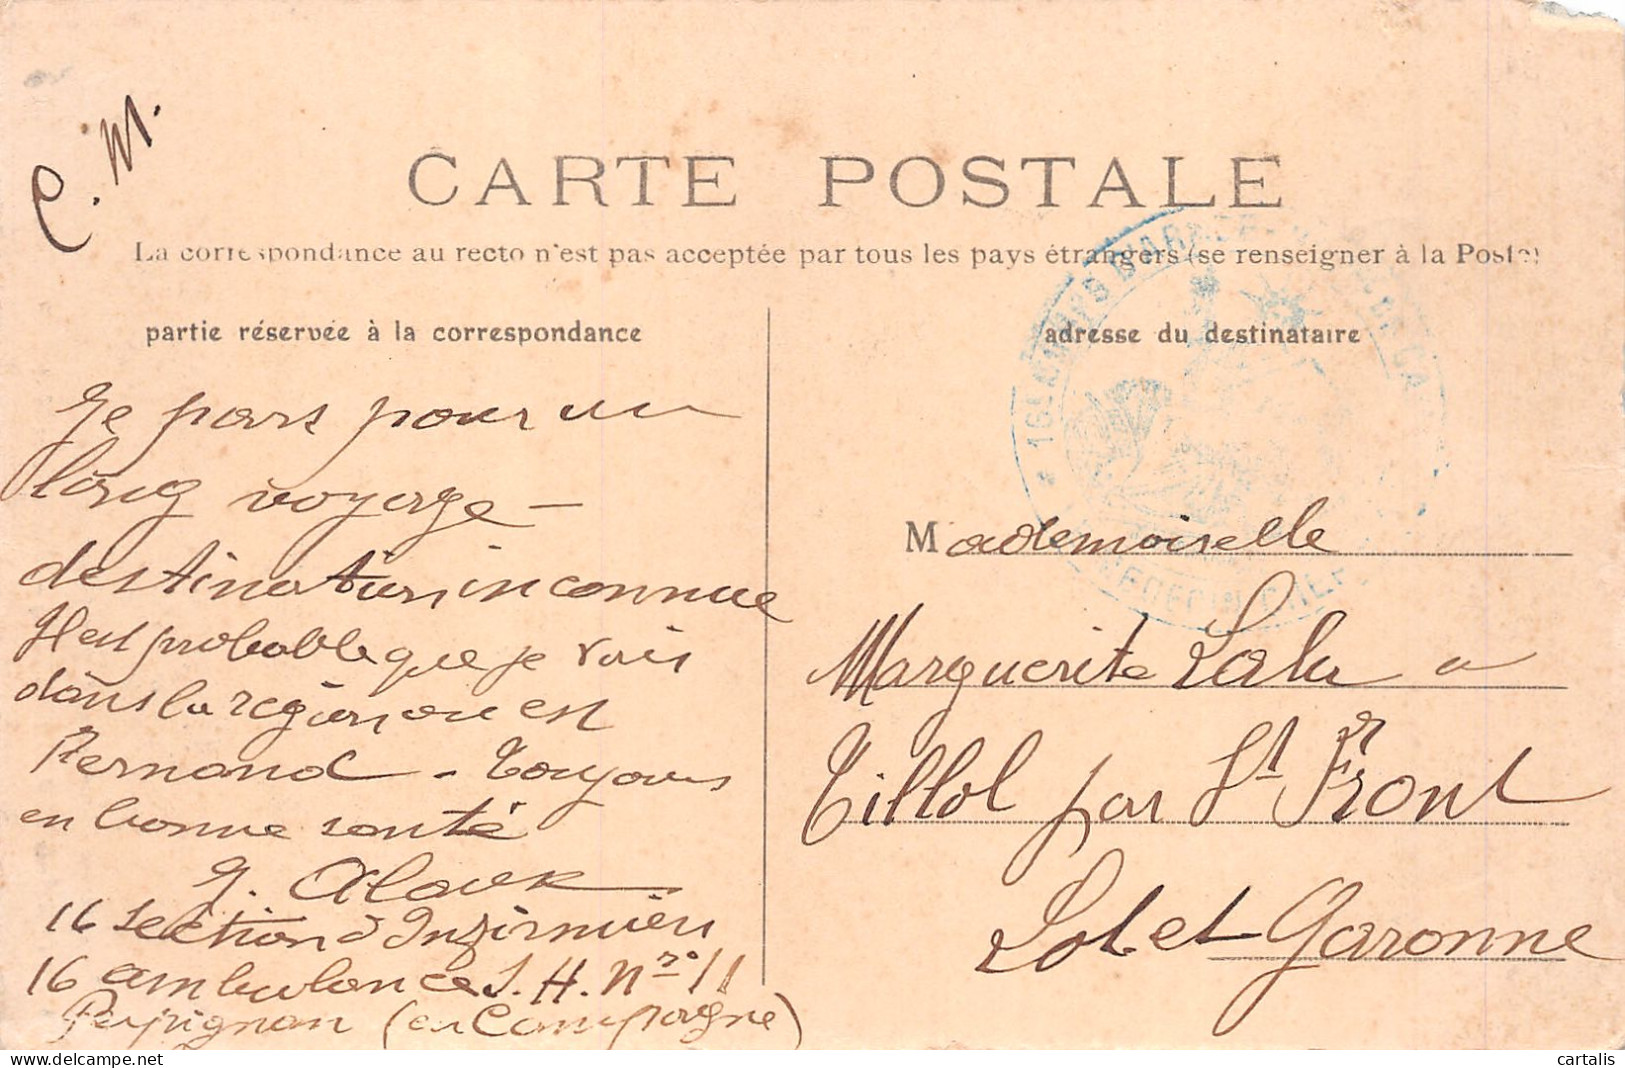 C. M.
CARTE POSTALE
La correspondance au recto n'est pas acceptée par tous les pays étrangers (se renseigner à la Poste)
partie réservée à la correspondance
Je pars pour un
long voyage -
destination inconnue
Il est probable que je vais
dans la région ou est
Fernand - Toujours
en bonne santé
16 section d'Infirmiers
16 ambulance S. H. Nro 11
Perpignan (en Campagne)
adresse du destinataire
Mademoiselle
Marguerite Lala a
Tillol par St Front
Lot et Garonne
cartalis